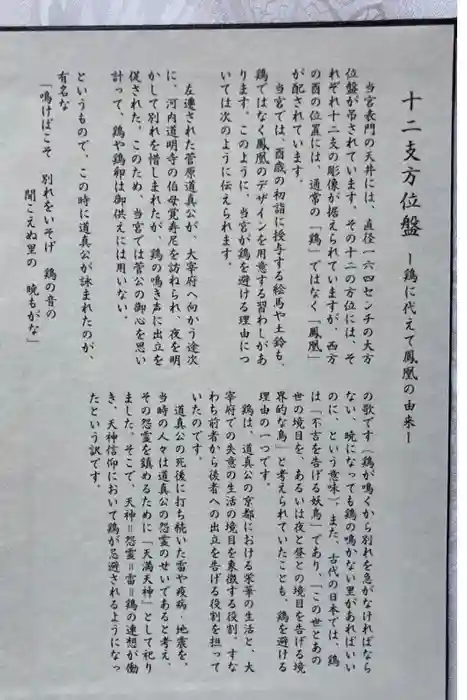 十二支方位盤 ー鶏に代えて鳳凰の由来ー
当宮表門の天井には、直径一六四センチの大方
位盤が吊されています。その十二の方位には、そ
れぞれ十二支の彫像が据えられていますが、西方
の酉の位置には、通常の「鶏」ではなく「鳳凰」
が配されています。
当宮では、酉歳の初詣に授与する絵馬や土鈴も、
鶏ではなく鳳凰のデザインを用意する習わしがあ
ります。このように、当宮が鶏を避ける理由につ
いては次のように伝えられます。
左遷された菅原道真公が、大宰府へ向かう途次
に、河内道明寺の伯母覚寿尼を訪ねられ、夜を明
かして別れを惜しまれたが、鶏の鳴き声に出立を
促された。このため、当宮では菅公の御心を思い
計って、鶏や鶏卵は御供えには用いない。
というもので、この時に道真公が詠まれたのが、
有名な
「鳴けばこそ 別れをいそげ 鶏の音の
聞こえぬ里の 暁もがな」
の歌です（鶏が鳴くから別れを急がなければなら
ない、暁になっても鶏の鳴かない里があればいい
のに、という意味）。また、古代の日本では、鶏
は「不吉を告げる妖鳥」であり、「この世とあの
世の境目を、あるいは夜と昼との境目を告げる境
界的な鳥」と考えられていたことも、鶏を避ける
理由の一つです。
鶏は、道真公の京都における栄華の生活と、大
宰府での失意の生活の境目を象徴する役割、すな
わち前者から後者への出立を告げる役割を担って
いたのです。
道真公の死後に打ち続いた雷や疫病・地震を、
当時の人々は道真公の怨霊のせいであると考え、
その怨霊を鎮めるために「天満天神」として祀り
ました。そこで、天神＝怨霊＝雷＝鶏の連想が働
き、天神信仰において鶏が忌避されるようになっ
たという訳です。